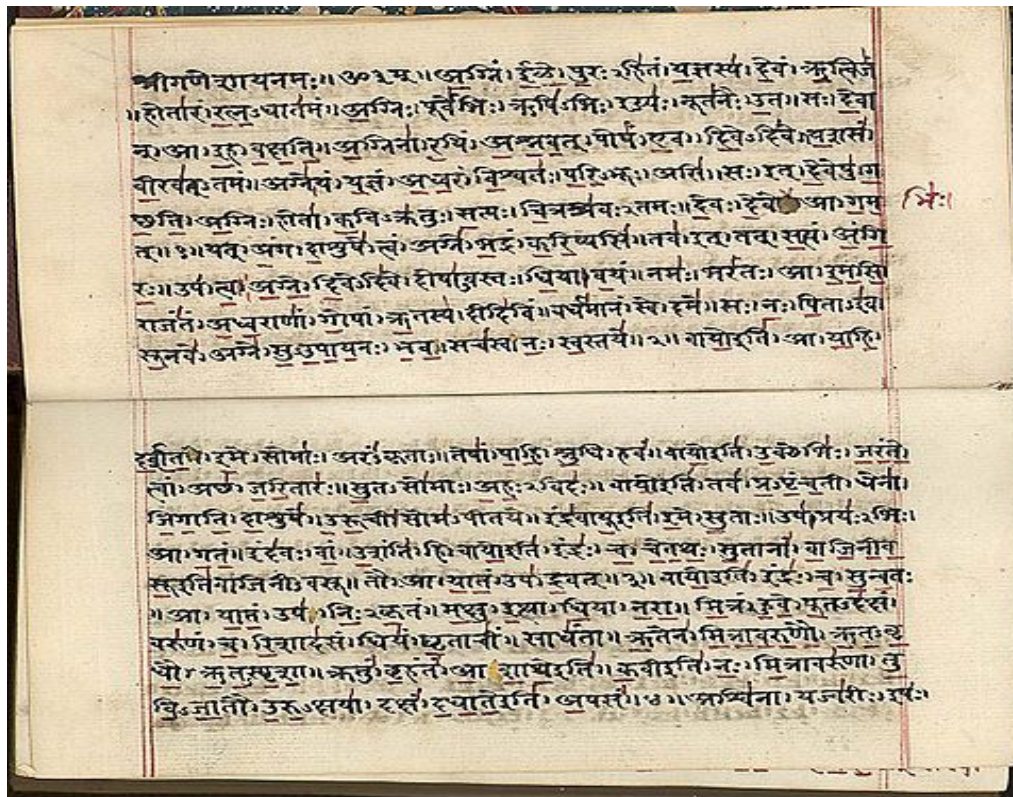 श्रीगणेशायनमः॥ॐ३म्॥अग्निं।ईळे।पुरःऽहितं।यज्ञस्य।देवं।ऋत्विजं
॥होतारं।रत्नऽधातमं॥अग्निः।पूर्वेभिः।ऋषिऽभिः।ईड्यः।नूतनैः।उत॥सः।देवा
न्।आ।इह।वक्षति॥अग्निना।रयिं।अश्नवत्।पोषं।एव।दिवेऽदिवे।यशसं
वीरवत्ऽतमं॥अग्ने।यं।यज्ञं।अध्वरं।विश्वतः।परिऽभूः।असि॥सः।इत्।देवेषु।ग
छति॥अग्निः।होता।कविऽक्रतुः।सत्यः।चित्रश्रवःऽतमः॥देवः।देवे आ।गम
भिः।
त्॥१॥यत्।अंग।दाशुषे।त्वं।अग्ने।भद्रं।करिष्यसि॥तव।इत्।तत्।सत्यं।अंगि
रः॥उप।त्वा।अग्ने।दिवेऽदिवे।दोषाऽवस्तः।धिया।वयं॥नमः।भरंतः।आ।इमसि
राजंतं।अध्वराणां।गोपां।ऋतस्य।दीदिविं॥वर्धमानं।स्वे।दमे॥सः।नः।पिताऽइव
सूनवे।अग्ने।सुऽउपायनः।भव॥सचस्व।नः।स्वस्तये॥२॥वायोइति।आ।याहि।
दर्शतइमे।सोमाः।अरंऽकृताः॥तेषां।पाहि।श्रुधि।हवं॥वायोइति।उक्थेभिः।जरंते।
त्वां।अछ।जरितारः॥सुतऽसोमाः।अहःऽविदः॥वायोइति।तव।प्रऽपृंचती।धेना।
जिगाति।दाशुषे॥उरूची।सोमऽपीतये॥इंद्रवायूइति।इमे।सुताः॥उप।प्रयःऽभिः।
आ।गतं॥इंदवः।वां।उशंति।हि॥वायोइति।इंद्रः।च।चेतथः।सुतानां।वाजिनीव
सूइतिवाजिनीऽवसू॥तौ।आ।यातं।उप।द्रवत्॥३॥वायोइति।इंद्रः।च।सुन्वतः
॥आ।यातं।उप।निःऽकृतं॥मक्षु।इत्था।धिया।नरा॥मित्रं।हुवे।पूतऽदक्षं।
वरुणं।च।रिशादसं॥धियं।घृताचीं॥साधंता॥ऋतेन।मित्रावरुणौ।ऋतऽवृ
धौ।ऋतऽस्पृशा॥क्रतुं।बृहंतं।आशाथेइति॥कवीइति।नः।मित्रावरुणा।तु
विऽजातौ।उरुऽक्षया॥दक्षं।दधातेइति।अपसं॥४॥अश्विना।यज्वरीः।इषः।